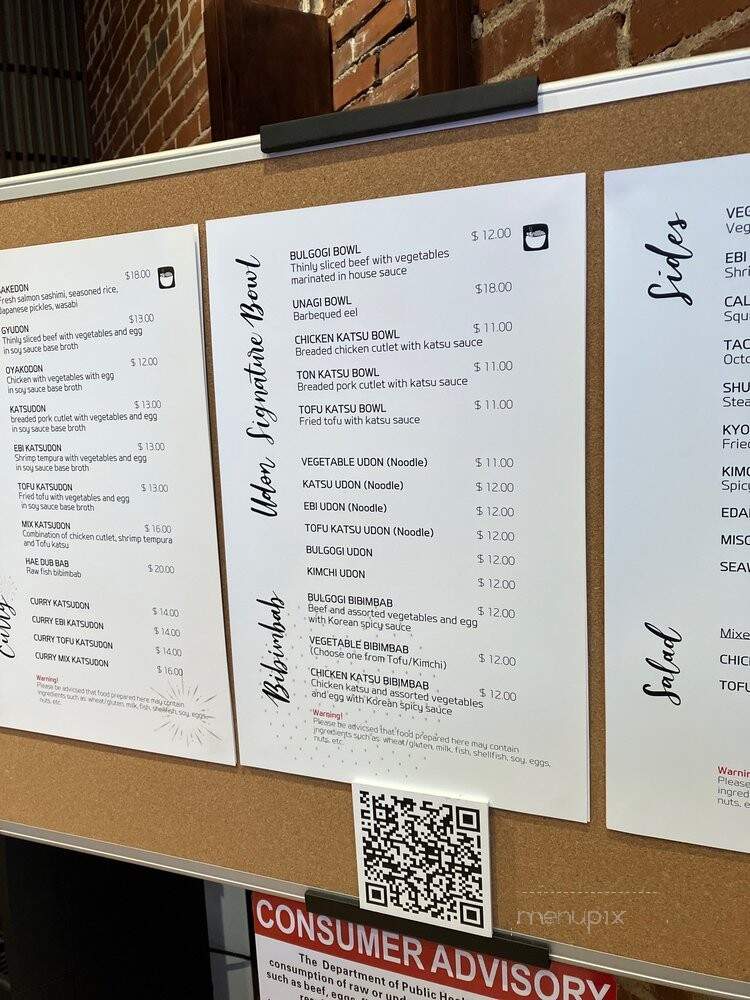 $18.00
Fresh salmon sashimi, seasoned rice,
Japanese pickles, wasabi
GYUDON $13.00
Thinly sliced beef with vegetables and egg
in soy sauce base broth
OYAKODON $ 12.00
Chicken with vegetables with egg
in soy sauce base broth
KATSUDON $ 13.00
breaded pork cutlet with vegetables and egg
in soy sauce base broth
EBI KATSUDON $ 13.00
Shrimp tempura with vegetables and egg
in soy sauce base broth
TOFU KATSUDON $ 13.00
Fried tofu with vegetables and egg
in soy sauce base broth
MIX KATSUDON $ 16.00
Combination of chicken cutlet, shrimp tempura
and Tofu katsu
HAE DUB BAB $ 20.00
Raw fish bibimbab
Curry
CURRY KATSUDON $ 14.00
CURRY EBI KATSUDON $ 14.00
CURRY TOFU KATSUDON $ 14.00
CURRY MIX KATSUDON $ 16.00
Warning!
Please be advicsed that food prepared here may contain
ingredients such as: wheat/gluten, milk, fish, shellfish, soy, eggs,
nuts, etc.
Signature Bowl
BULGOGI BOWL $ 12.00
Thinly sliced beef with vegetables
marinated in house sauce
UNAGI BOWL $18.00
Barbequed eel
CHICKEN KATSU BOWL $ 11.00
Breaded chicken cutlet with katsu sauce
TON KATSU BOWL $ 11.00
Breaded pork cutlet with katsu sauce
TOFU KATSU BOWL $ 11.00
Fried tofu with katsu sauce
Udon
VEGETABLE UDON (Noodle) $ 11.00
KATSU UDON (Noodle) $ 12.00
EBI UDON (Noodle) $ 12.00
TOFU KATSU UDON (Noodle) $ 12.00
BULGOGI UDON $ 12.00
KIMCHI UDON $ 12.00
Bibimbab
BULGOGI BIBIMBAB $ 12.00
Beef and assorted vegetables and egg
with Korean spicy sauce
VEGETABLE BIBIMBAB $ 12.00
(Choose one from Tofu/Kimchi)
CHICKEN KATSU BIBIMBAB $ 12.00
Chicken katsu and assorted vegetables
and egg with Korean spicy sauce
Warning!
Please be advicsed that food prepared here may contain
ingredients such as: wheat/gluten, milk, fish, shellfish, soy, eggs,
nuts, etc.
Sides
EBI
EDA
MISO
Salad
Mixe
CHIC
TOFU
Please
ingred
nuts, e
menupix
CONSUMER ADVISORY
The Department of Public Hea
consumption of raw or und
such as beef, eggs, fi